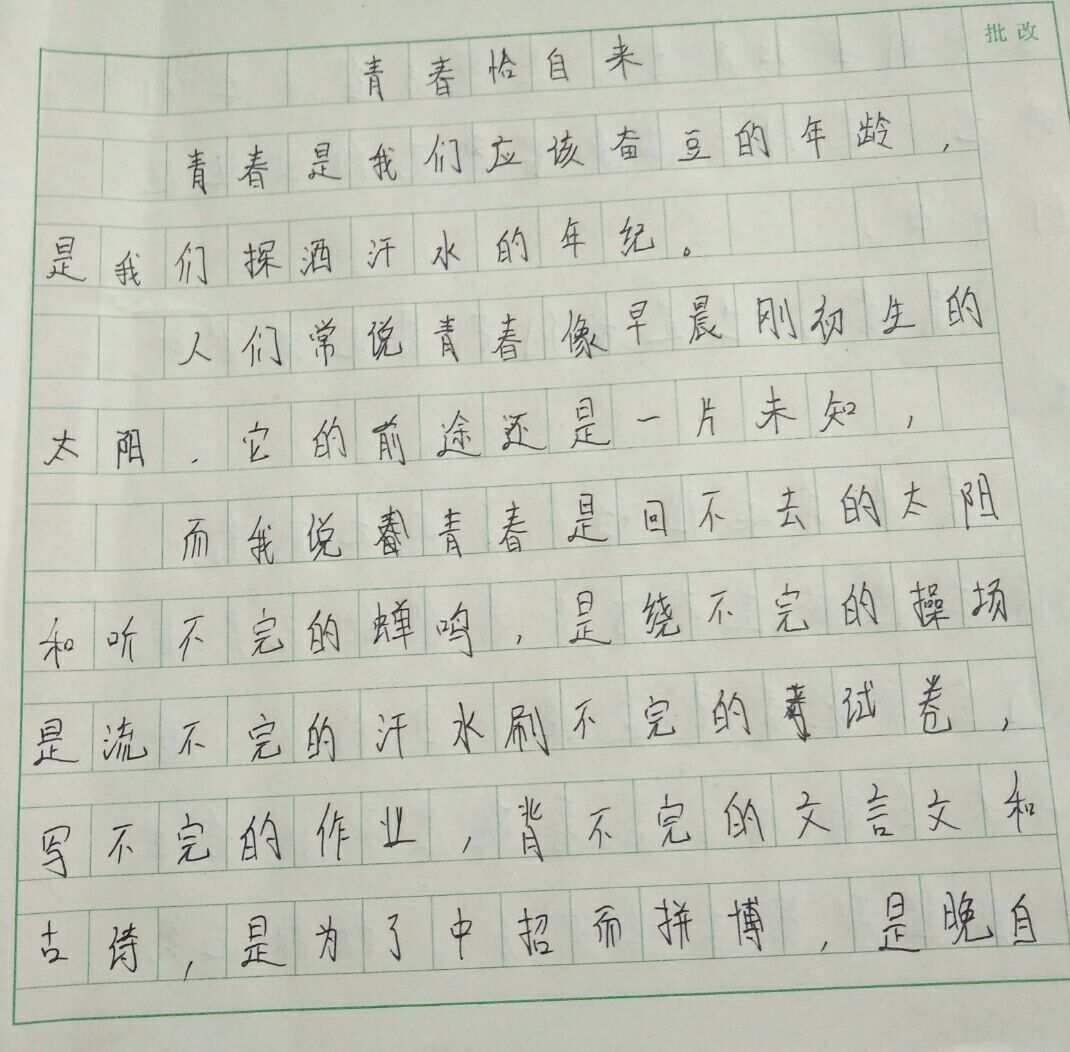 批改
青春恰自来
青春是我们应该奋豆的年龄，
是我们探洒汗水的年纪。
人们常说青春像早晨刚初生的
太阳．它的前途还是一片未知，
而我说青春是回不去的太阳
和听不完的蝉鸣，是绕不完的操场
是流不完的汗水刷不完的考试卷，
写不完的作业，背不完的文言文和
古诗，是为了中招而拼博，是晚自